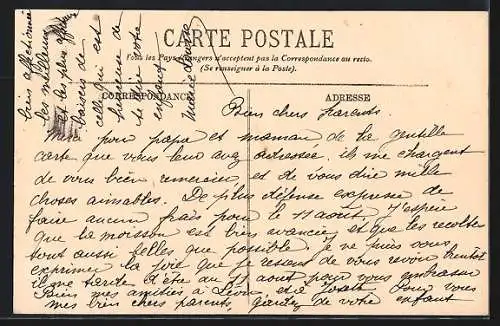 CARTE POSTALE
Tous les Pays étrangers n'acceptent pas la Correspondance au recto.
(Se renseigner à la Poste).
CORRESPONDANCE
ADRESSE
Bien chers parents.
Merci pour papa et maman de la gentille
carte que vous leur avez adressée. ils me chargent
de vous bien remercier et de vous dire mille
choses aimables. De plus défense expresse de
faire aucun frais pour le 11 août. J'espère
que la moisson est bien avancée et que les récoltes
sont aussi belles que possible. Je ne puis vous
exprimer la joie que je ressens de vous revoir bientôt
il me tarde d'être au 11 août pour vous embrasser
Bien mes amitiés à Léon, et à Pour vous
mes bien chers parents, gardez de votre enfant
bien affectionné
les meilleurs
et les plus affectueux
baisers de
celle qui est
heureuse de
se dire votre
enfant
Marie Louise